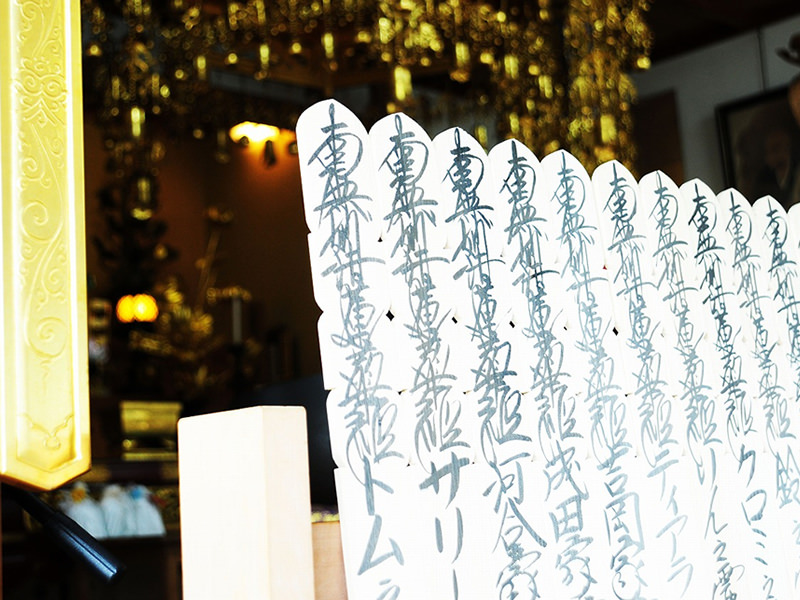 南無妙法蓮華経
南無妙法蓮華経
南無妙法蓮華経クロミ之
南無妙法蓮華経りん之霊
南無妙法蓮華経ティアラ
南無妙法蓮華経吉岡家
南無妙法蓮華経成田家
南無妙法蓮華経河合家
南無妙法蓮華経サリー
南無妙法蓮華経トム之